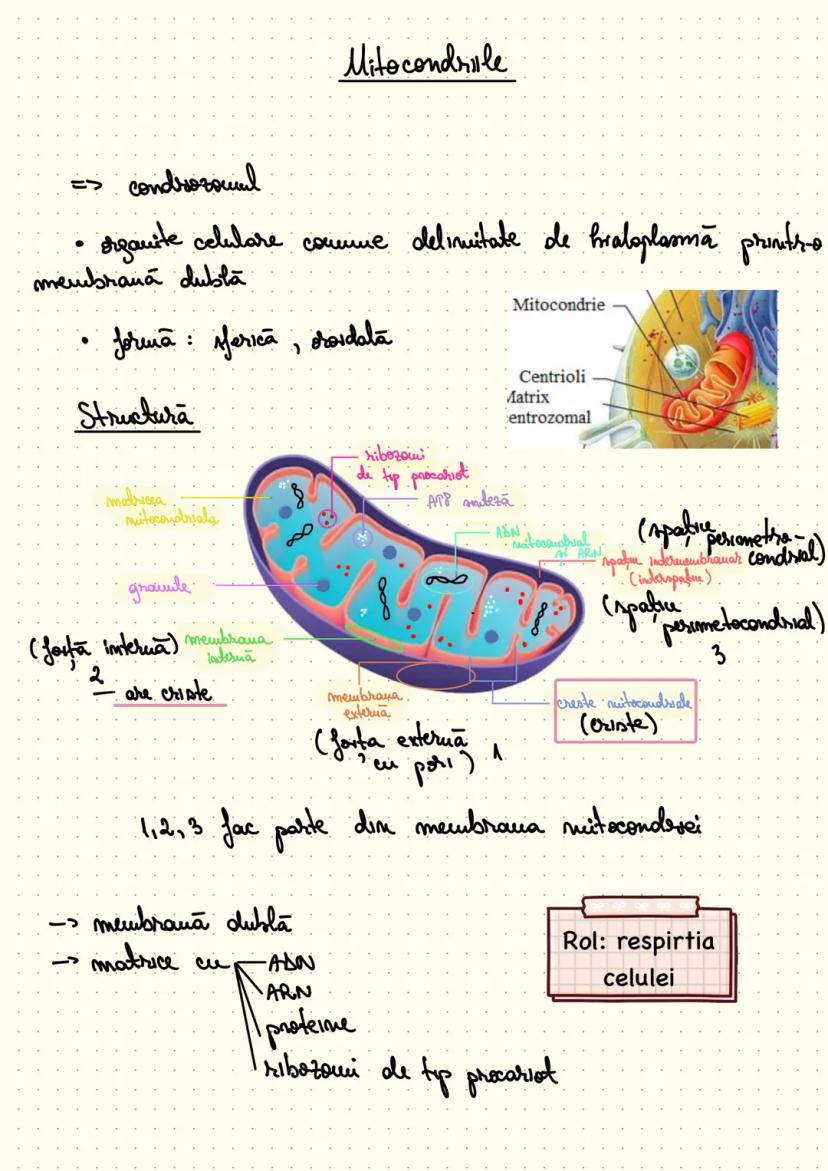 Mitocondriile
=> condriozomul
• organite celulare comune delimitate de hialoplasmă printr-o
membrană dublă
• formă : sferică , ovoidală
Mitocondrie
Centrioli
Matrix
centrozomal
Structură
ribozomi
de tip procariot
matricea
mitocondriala
ATP sinteză
ADN
mitocondrial
și ARN
(spațiu perimetro-
condrial)
spațiu intermembranar
(interspațiu)
granule
(spațiu
perimetocondrial)
3
(forță internă)
2
membrana
internă
— are criste
membrana
externă
creste mitocondriale
(criste)
(forța externă
cu pori) 1
1,2,3 fac parte din membrana mitocondriei
-> membrană dublă
-> matrice cu ADN
ARN
proteine
ribozomi de tip procariot
Rol: respirtia
celulei